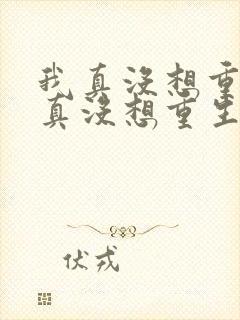 我真没想重
真没想重生
伏戎